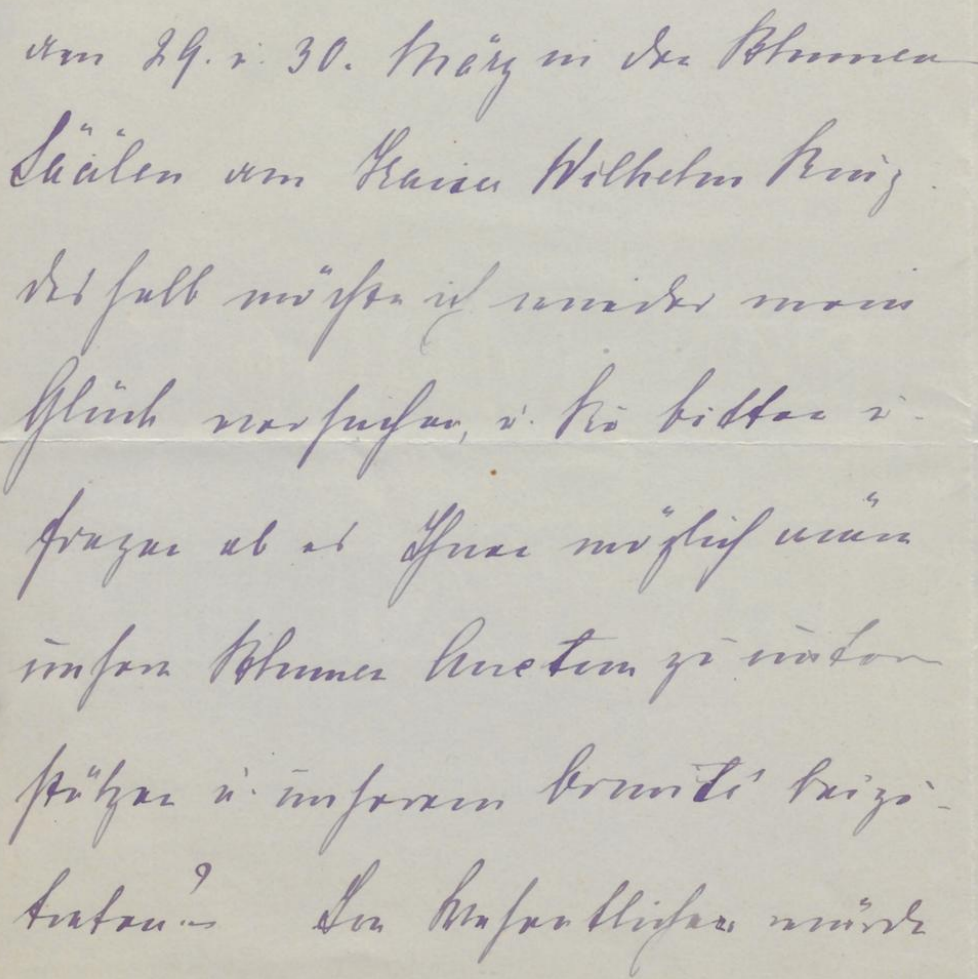 am 29. u. 30. März in den Blumen
Säälen am Kaiser Wilhelm Ring
deshalb möchte ich wieder mein
Glück versuchen, u. Sie bitten u.
fragen ob es Ihnen möglich wäre
unsere Blumen Auction zu unter
stützen u. unserem Comité beizu-
treten? Im Wesentlichen würde